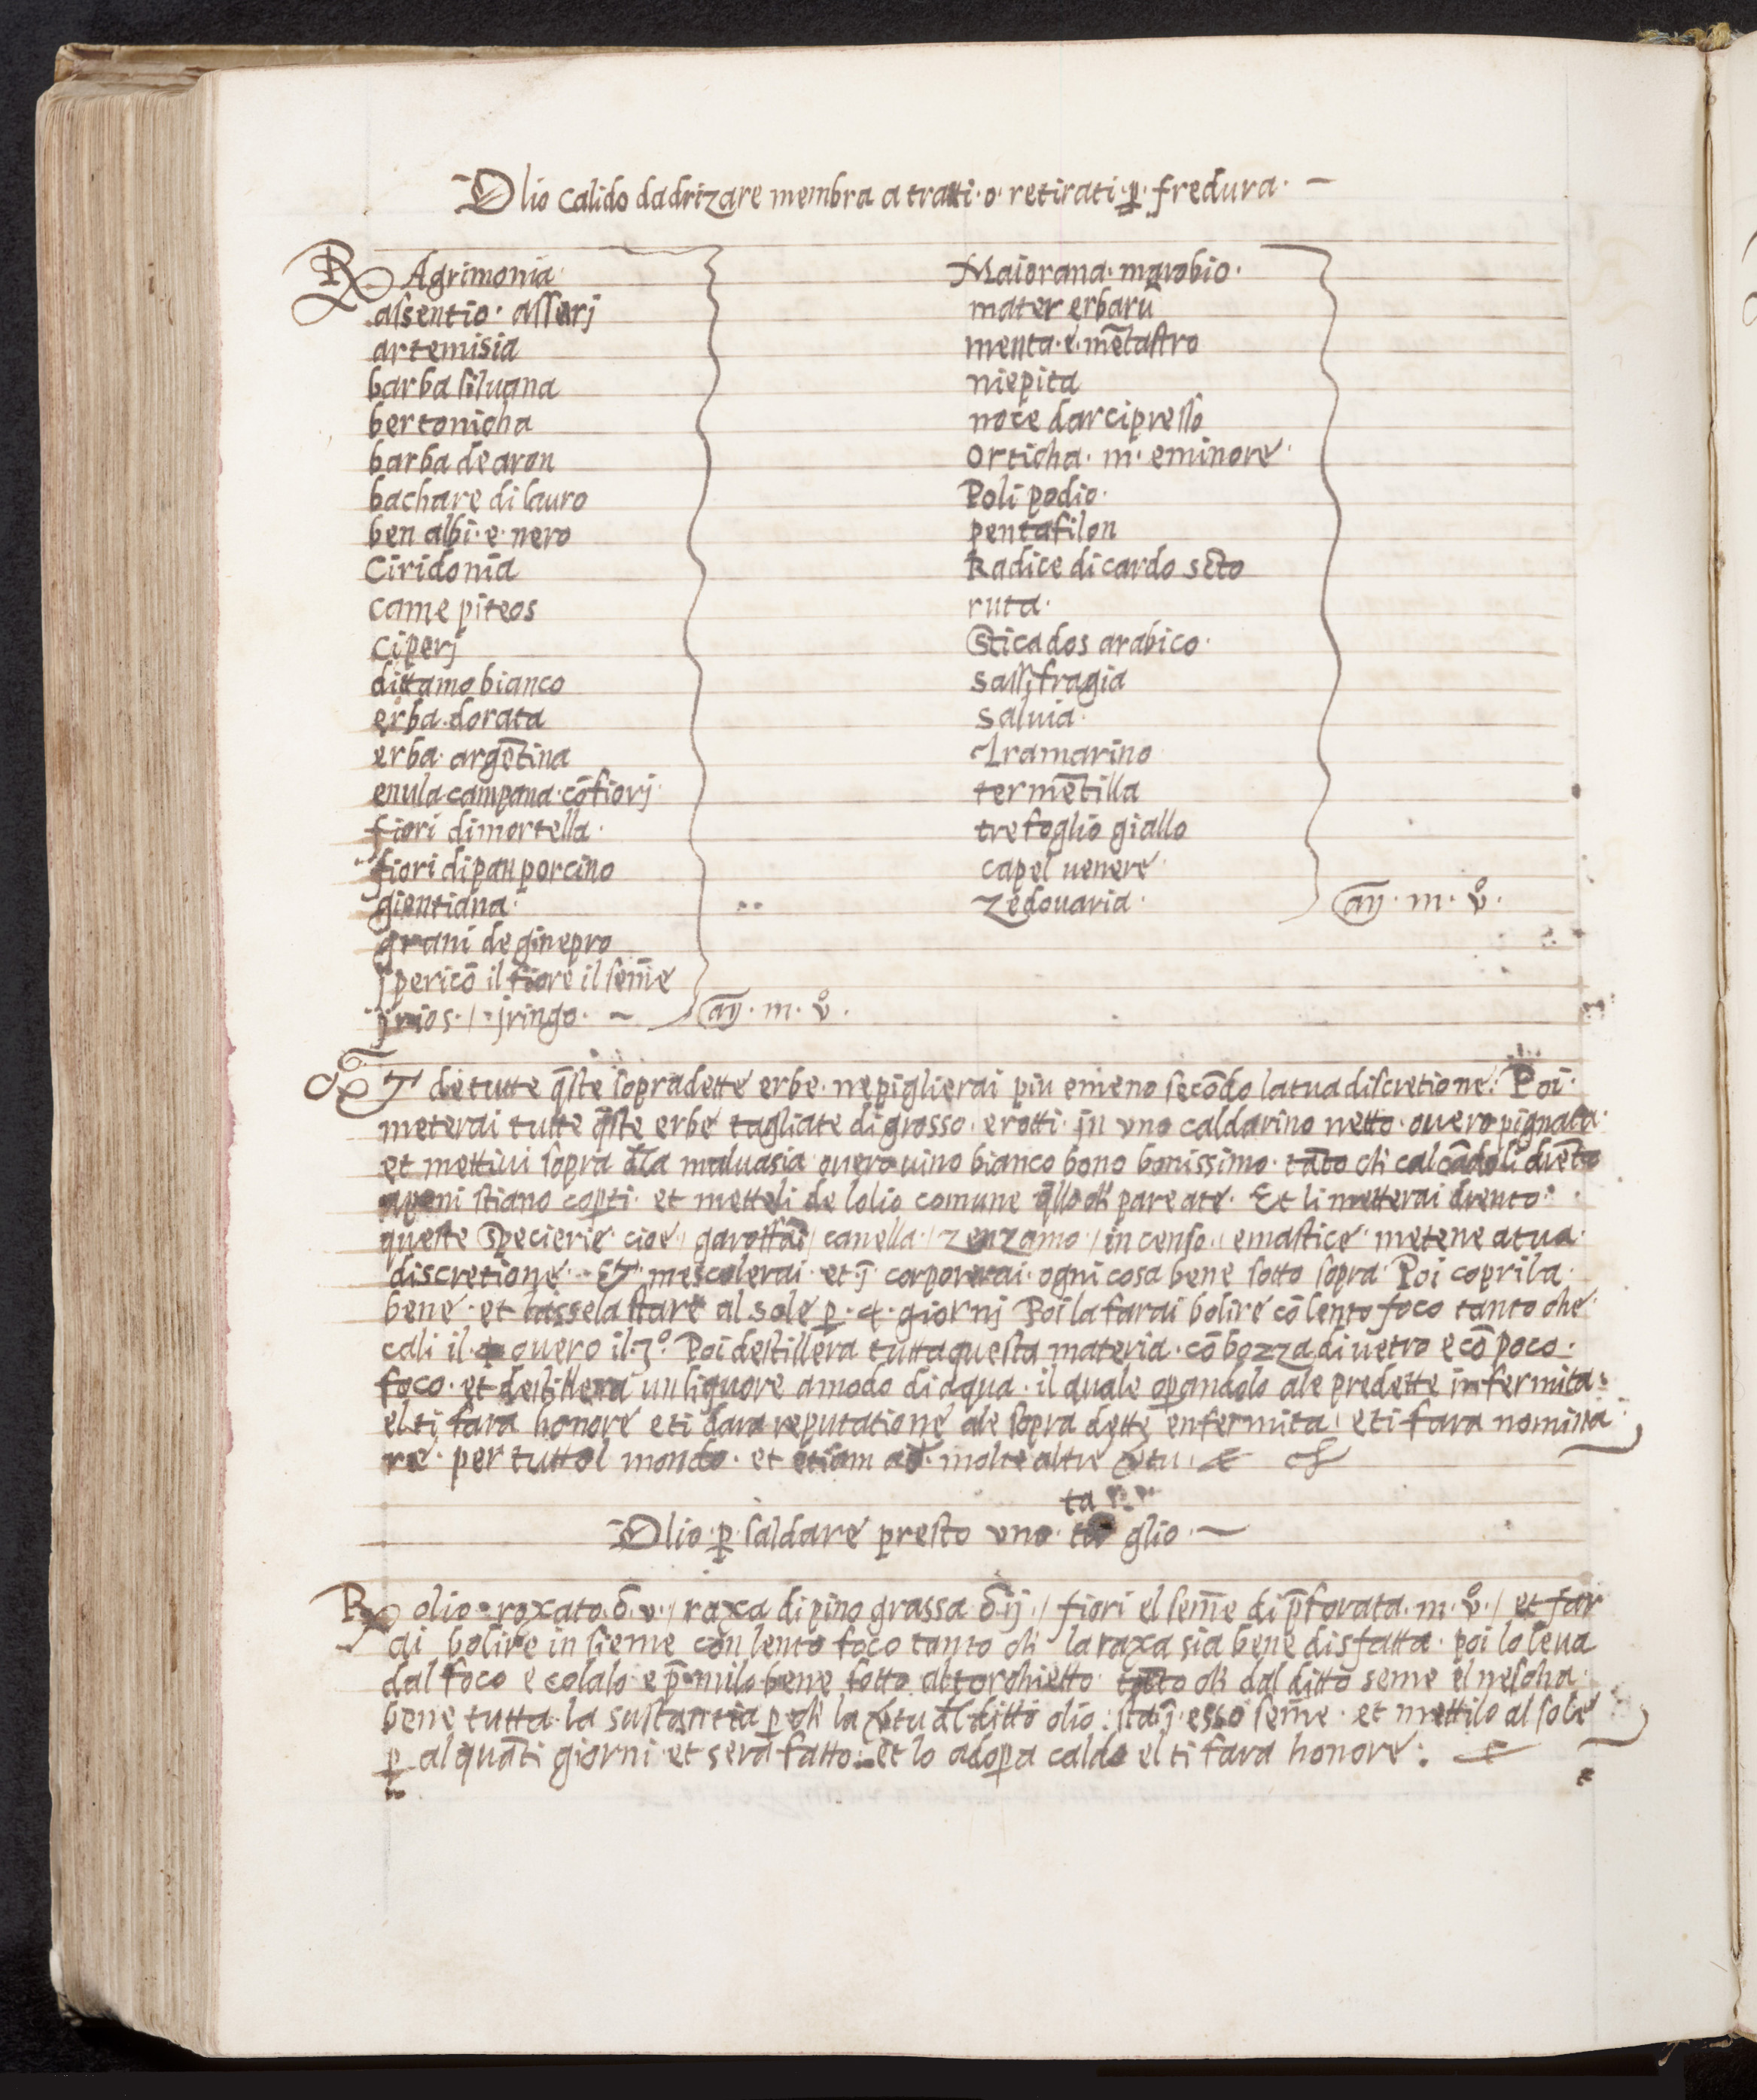 Olio calido dadrizare membra a tratti · o · retirati · p̱ · fredura · ~
℞ Agrimonia
assentio · assarj
artemisia
barba siluana
bertonicha
barba de aron
bachare di lauro
ben albi · e · nero
Ciridonia
came piteos
Ciperj
dittamo bianco
erba dorata
erba argētina
enula campana · cō fiorj
fiori di mortella ·
fiori di pan porcino
gientiana ·
grani de ginepro
jpericō il fiore il sem̄e
jrios · / · jringo · ~ añ · m · v̊ ·
Maiorana · marobio ·
mater erbarū
menta · e · mētastro
niepita
noce darcipresso
orticha · m · e minore ·
Poli podio ·
pentafilon
Radice di cardo scto
ruta ·
Sticados arabico ·
sassifragia
saluia ·
tramarino
termētilla
trefoglio giallo
capel uenere
zedouaria · añ · m · v̊ ·
Et de tutte q̄ste sopradette erbe · ne piglierai piu e meno secōdo la tua discretione : Poi ·
meterai tutte q̄ste erbe tagliate di grosso · e rotti · in vno caldarino netto · ouero pignata ·
et mettiui sopra d̄la maluasia ouero uino bianco bono bonissimo · tāto ch̄ calcādoli drēto
apeni stiano cop̱ti · et metteli de lolio comune q̄llo ch̄ pare a te · Et li metterai drento ·
queste Specierie · cioe / garoffāi / canella · / zenzamo · / in censo · / e mastice · metene a tua ·
discretione · Et mescolerai · et ī corporerai · ogni cosa bene sotto sopra · Poi coprila ·
bene · et lassela stare al sole p̱ · 4 · giornj Poi la farai bolire cō lento foco tanto che ·
cali il · 4 · ouero il · 3° · Poi destillera tutta questa materia · cō bozza di uetro e cō poco ·
foco · et destillera un liquore a modo di aqua · il quale op̱andolo ale predette infermita :
el ti fara honore e ti dara reputatione ale sopra dette enfermita · e ti fara nomina
re · per tutto l mondo · et etiam ad · molte altre v̄tu ·
Olio · p̱ · saldare presto vno · ta glio · ~
℞ olio roxato · ō · v · / raxa di pino grassa · ō · ij · / fiori el sem̄e di p̱forata · m · v̊ · / et far
ai bolire in sieme con lento foco tanto ch̄ la raxa sia bene disfatta · poi lo leua
dal foco e colalo · e p̄milo bene sotto al torchietto · tāto ch̄ dal ditto seme el nescha ·
bene tutta · la sustantia p̱ ch̄ la v̄tu dl ditto olio : sta ī esso sem̄e · et mettilo al sole
p̱ alquāti giorni · et sera fatto · et lo adop̱a caldo el ti fara honore :